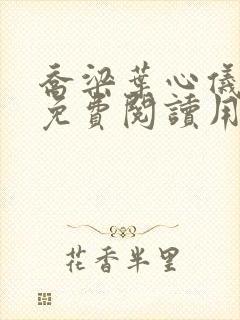 喬梁葉心儀
免費閱讀用
花香半里